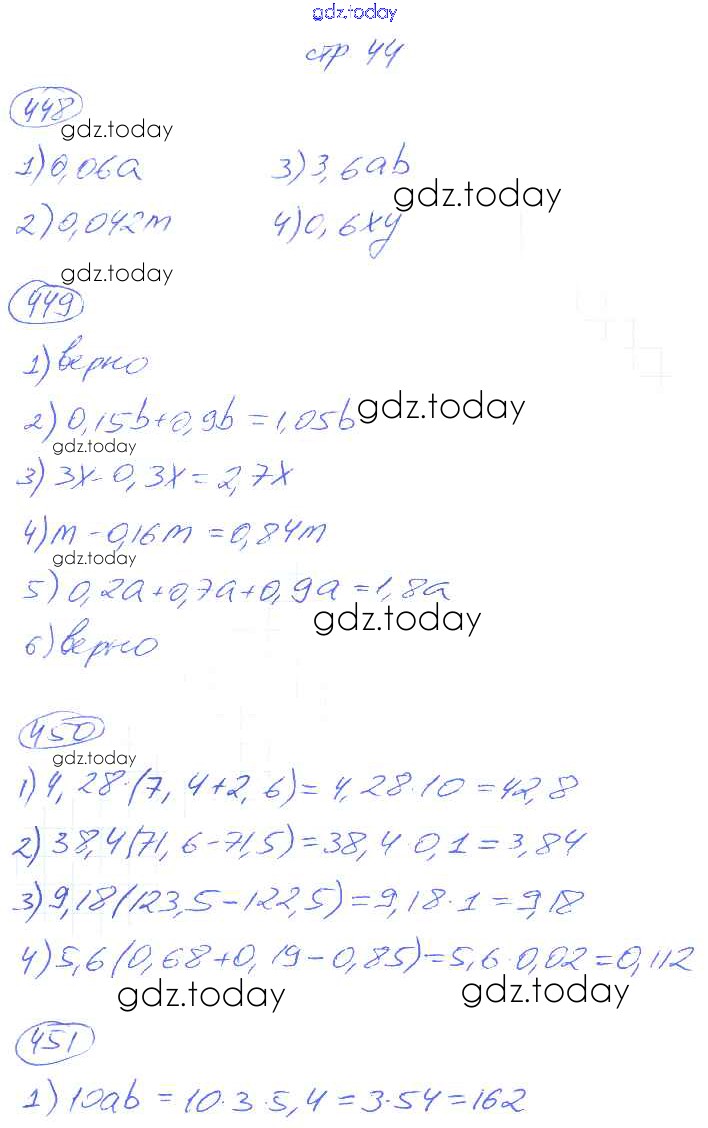 gdz.today
стр 44
448
gdz.today
1) 0,06a 3) 3,6ab
gdz.today
2) 0,042m 4) 0,6xy
gdz.today
449
1) верно
gdz.today
2) 0,15b+0,9b=1,05b
gdz.today
3) 3x-0,3x=2,7x
4) m-0,16m=0,84m
gdz.today
5) 0,2a+0,7a+0,9a=1,8a
gdz.today
6) верно
450
gdz.today
1) 4,28·(7,4+2,6)=4,28·10=42,8
2) 38,4(71,6-71,5)=38,4·0,1=3,84
3) 9,18(123,5-122,5)=9,18·1=9,18
4) 5,6(0,68+0,19-0,85)=5,6·0,02=0,112
gdz.today gdz.today
451
1) 10ab=10·3·5,4=3·54=162